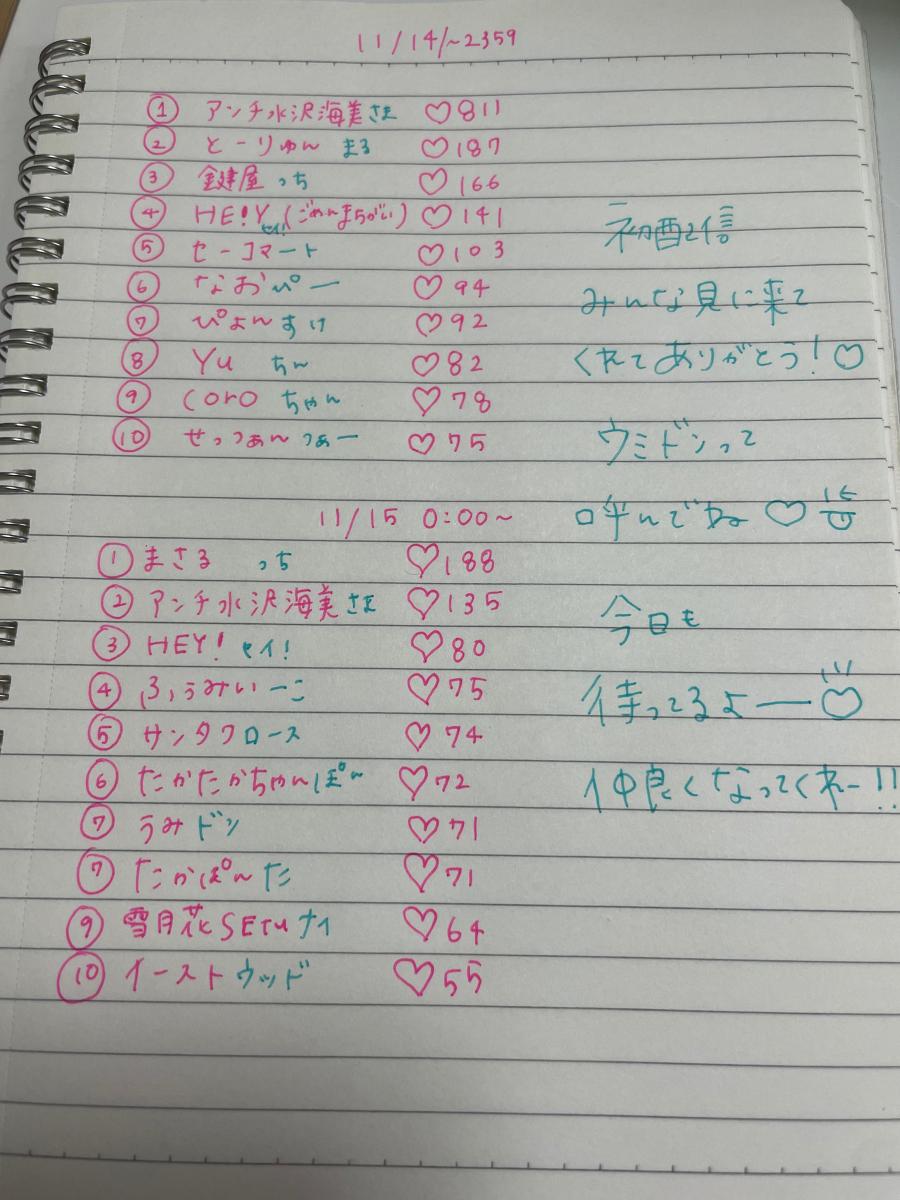 11/14/~2359
① アンチ水沢海美さま ♡811
② とーりゅん まる ♡187
③ 鍵屋 っち ♡166
④ HE!Y セイ! (ごめんまちがい) ♡141
⑤ セーコマート ♡103
⑥ なおぴー ♡94
⑦ ぴょんすけ ♡92
⑧ Yu ちん ♡82
⑨ coro ちゃん ♡78
⑩ せっつぁんつぁー ♡75
11/15 0:00~
① まさる っち ♡188
② アンチ水沢海美さま ♡135
③ HEY! セイ! ♡80
④ ふぅみいーこ ♡75
⑤ サンタクロース ♡74
⑥ たかたかちゃんぽん ♡72
⑦ うみドン ♡71
⑦ たかぽんた ♡71
⑨ 雪月花SETUナイ ♡64
⑩ イーストウッド ♡55
初配信
みんな見に来て
くれてありがとう!♡
ウミドンって
呼んでね ♡
今日も
待ってるよー♡
仲良くなってくれー!!